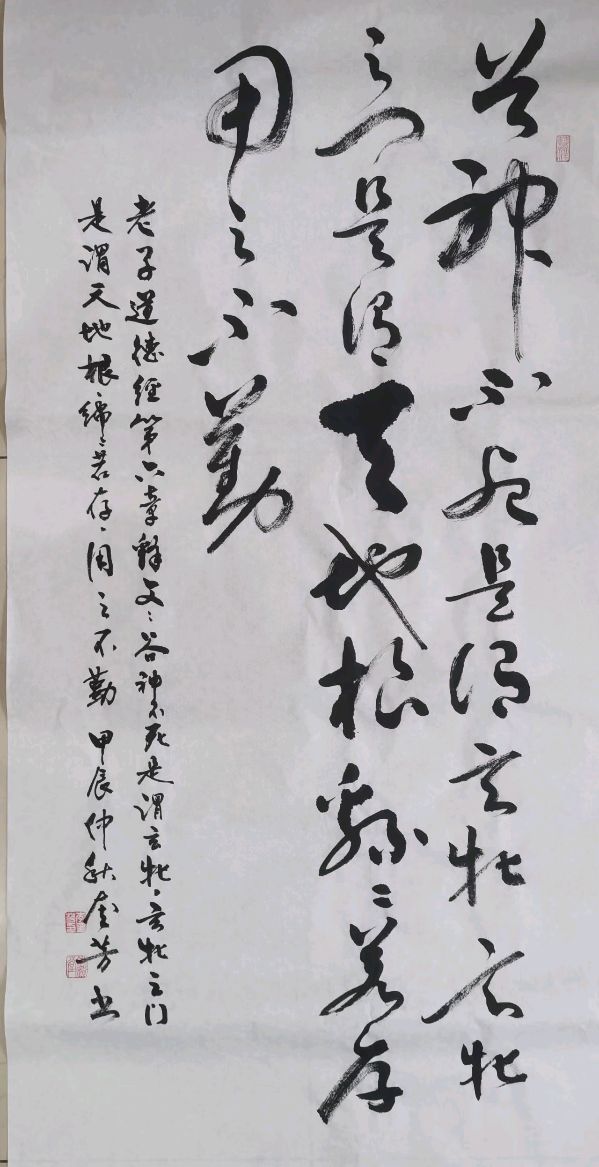 谷神不死是谓玄牝玄牝
之门是谓天地根绵〻若存
用之不勤
老子道德经第六章释文〻谷神不死是谓玄牝〻玄牝之门
是谓天地根绵〻若存〻用之不勤 甲辰仲秋金芳书